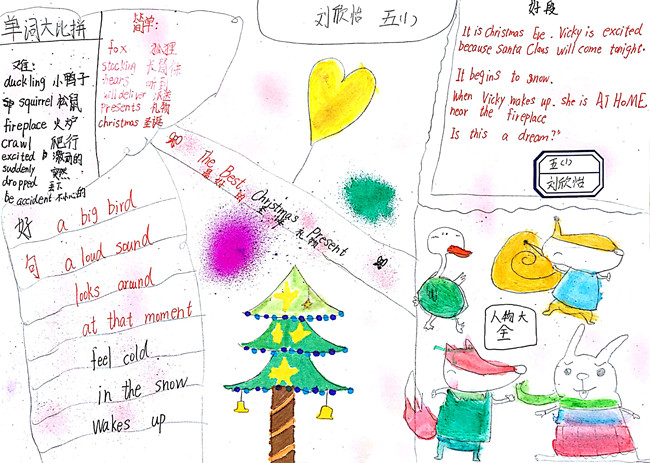 单词大比拼
难:
duckling 小鸭子
squirrel 松鼠
fireplace 火炉
crawl 爬行
excited 激动的
suddenly 突然
dropped
be accident 不小心的
简单:
fox 狐狸
stocking
hears 听到
will deliver
presents 礼物
christmas 圣诞
刘欣怡 五(1)
好段
It is christmas Eve. Vicky is excited
because Santa Claus will come tonight.
It begins to snow.
When Vicky wakes up. she is AT HOME
near the fireplace
Is this a dream?"
五(1)
刘欣怡
The Best Christmas Present
最好的圣诞礼物
好句
a big bird
a loud sound
looks around
at that moment
feel cold.
in the snow
Wakes up
人物大
全